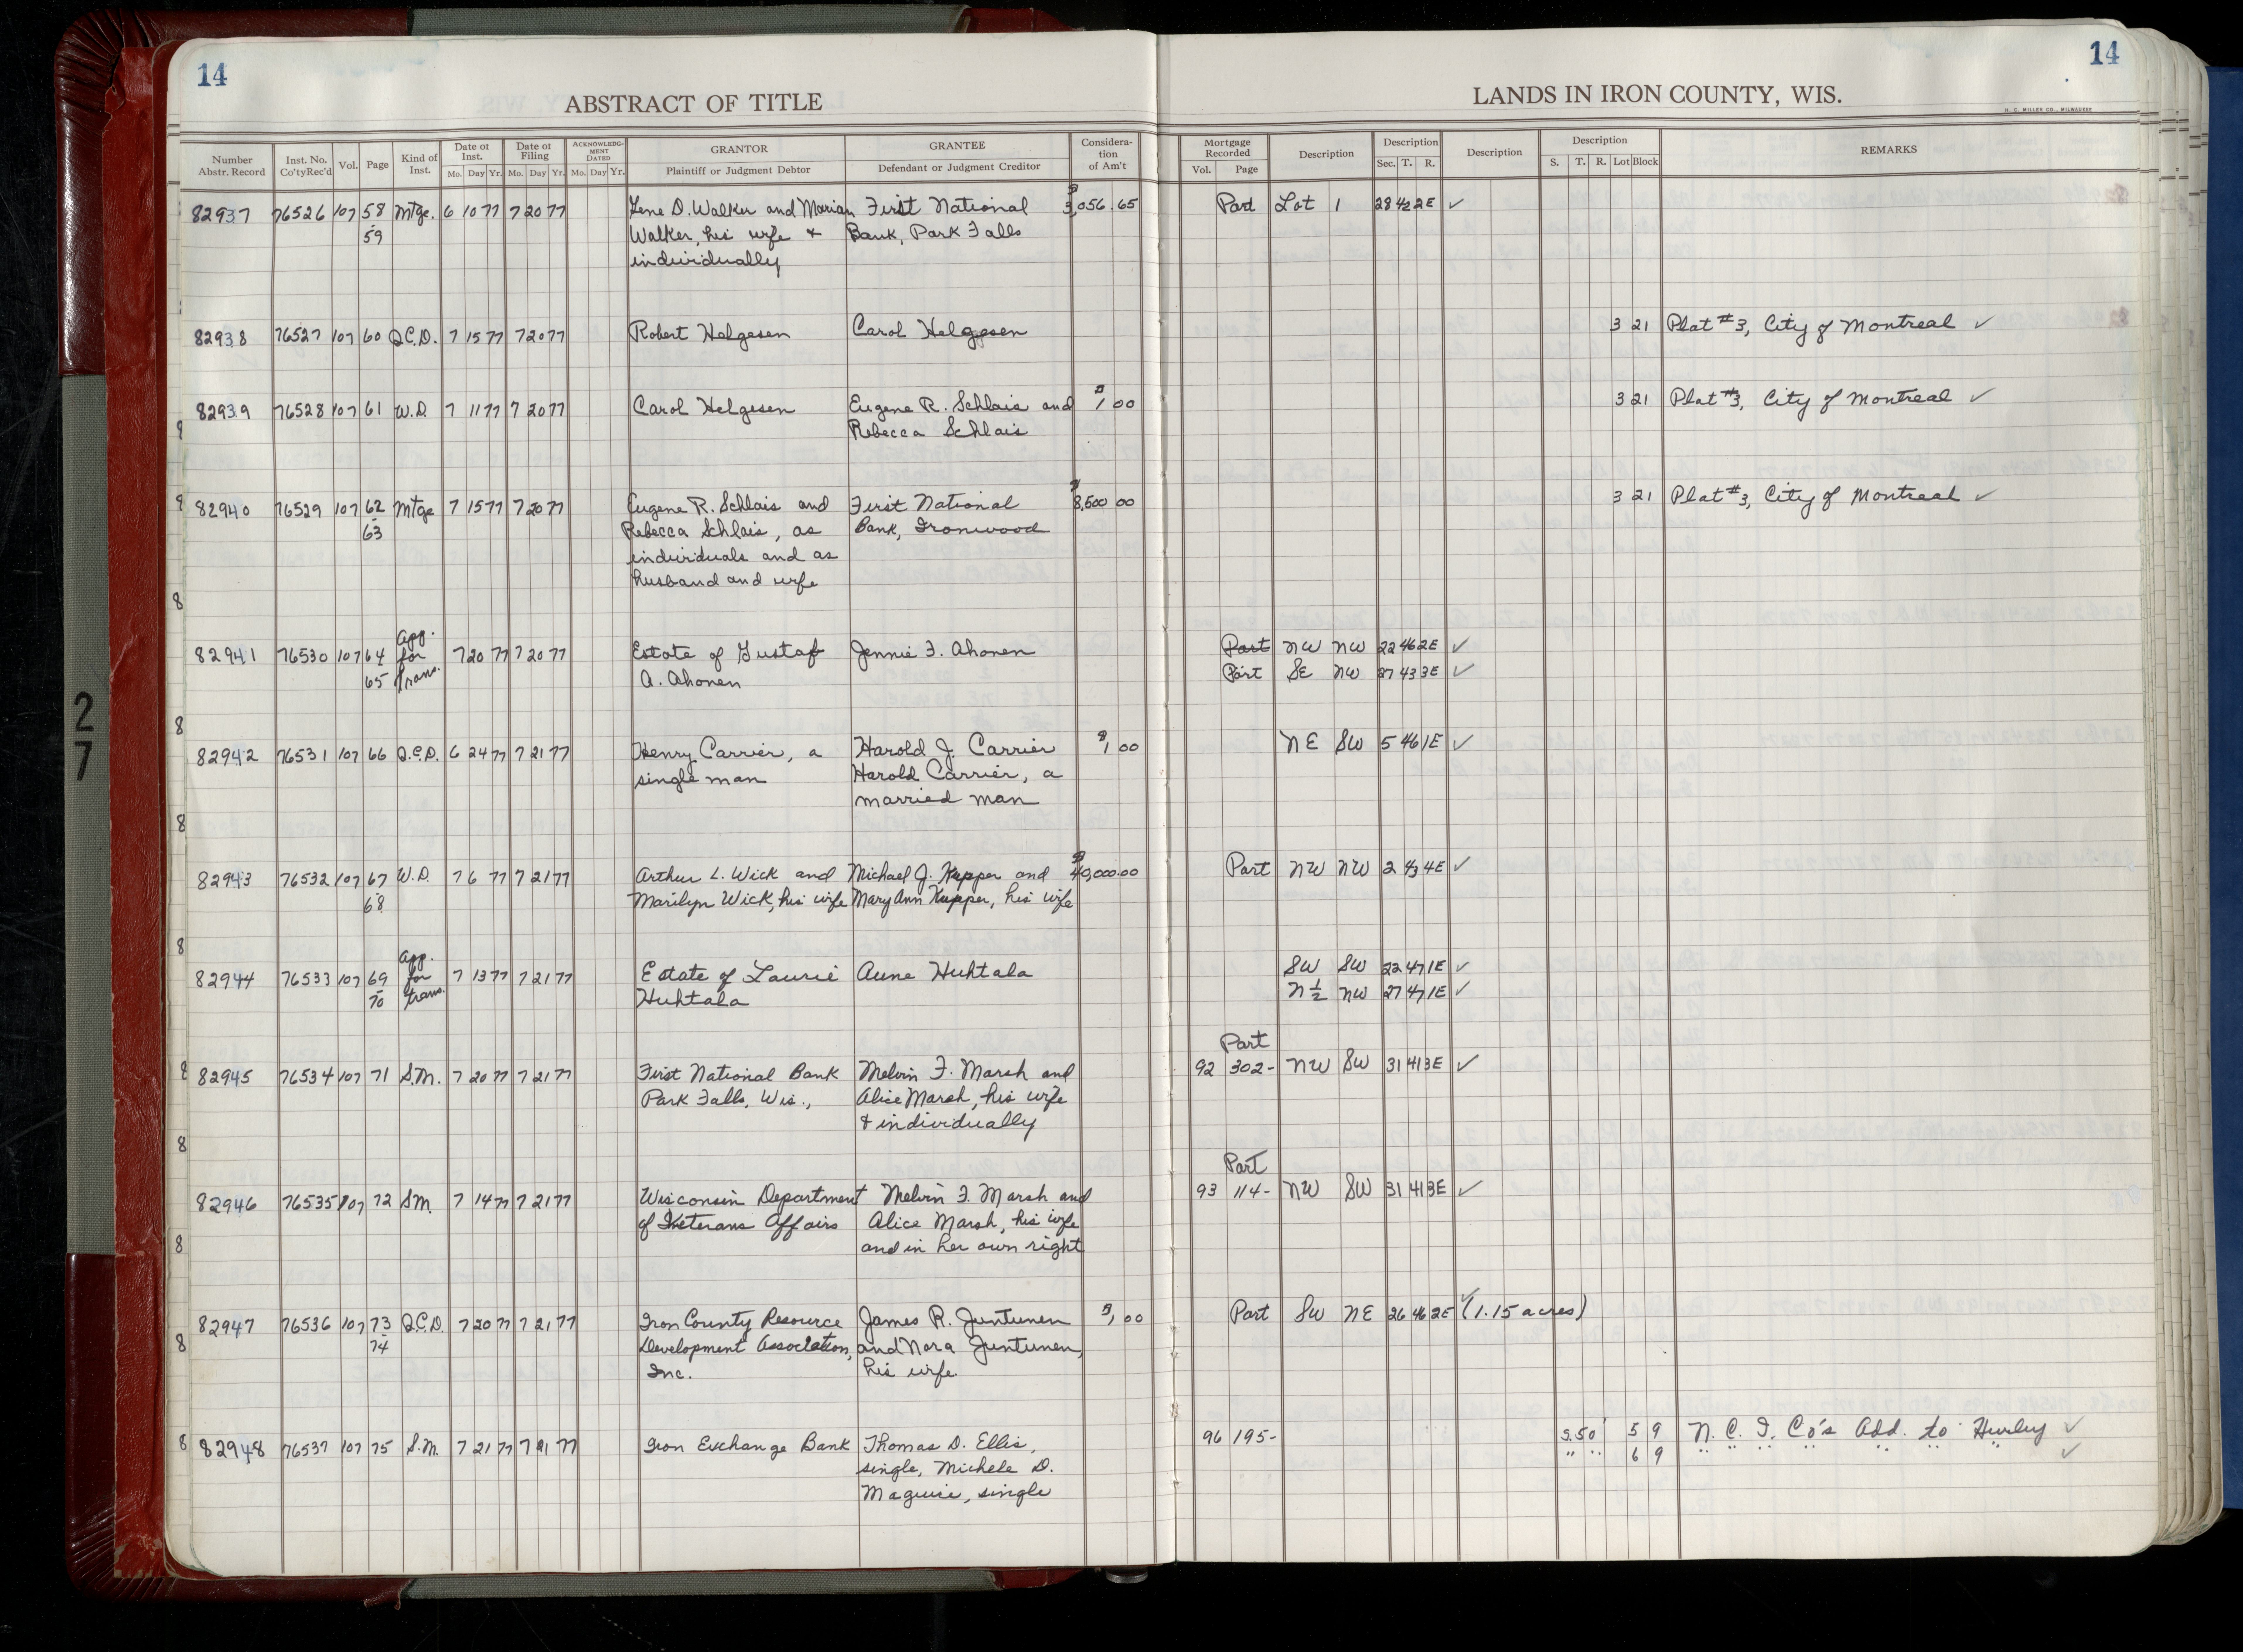 14
14
ABSTRACT OF TITLE
LANDS IN IRON COUNTY, WIS.
H. C. MILLER CO., MILWAUKEE
Number Abstr. Record Inst. No. Co'tyRec'd Vol. Page Kind of Inst. Date of Inst. Mo. Day Yr. Date of Filing Mo. Day Yr. ACKNOWLEDGMENT DATED Mo. Day Yr. GRANTOR Plaintiff or Judgment Debtor GRANTEE Defendant or Judgment Creditor Consideration of Am't Mortgage Recorded Vol. Page Description Description Sec. T. R. Description Description S. T. R. Lot Block REMARKS
82937 76526 107 58 Mtge. 6 10 77 7 20 77 Gene D. Walker and Marian First National $3,056.65 Part Lot 1 28 42 2E ✓
59 Walker, his wife + Bank, Park Falls
individually
82938 76527 107 60 Q.C.D. 7 15 77 7 20 77 Robert Helgesen Carol Helgesen 3 21 Plat #3, City of Montreal ✓
82939 76528 107 61 W.D. 7 11 77 7 20 77 Carol Helgesen Eugene R. Schlais and $1 00 3 21 Plat #3, City of Montreal ✓
Rebecca Schlais
82940 76529 107 62 Mtge 7 15 77 7 20 77 Eugene R. Schlais and First National $8,500 00 3 21 Plat #3, City of Montreal ✓
63 Rebecca Schlais, as Bank, Ironwood
individuals and as
husband and wife
82941 76530 107 64 App. for 7 20 77 7 20 77 Estate of Gustaf Jennie F. Ahonen Part NW NW 22 46 2E ✓
65 trans. A. Ahonen Part SE NW 27 43 3E ✓
82942 76531 107 66 Q.C.D. 6 24 77 7 21 77 Henry Carrier, a Harold J. Carrier $1 00 NE SW 5 46 1E ✓
single man Harold Carrier, a
married man
82943 76532 107 67 W.D. 7 6 77 7 21 77 Arthur L. Wick and Michael J. Kupper and $40,000.00 Part NW NW 2 43 4E ✓
68 Marilyn Wick, his wife Mary Ann Kupper, his wife
82944 76533 107 69 App. for 7 13 77 7 21 77 Estate of Laurie Aune Huhtala SW SW 22 47 1E ✓
70 trans. Huhtala N ½ NW 27 47 1E ✓
Part
82945 76534 107 71 S.M. 7 20 77 7 21 77 First National Bank Melvin F. Marsh and 92 302- NW SW 31 41 3E ✓
Park Falls, Wis., Alice Marsh, his wife
+ individually
Part
82946 76535 107 72 S.M. 7 14 77 7 21 77 Wisconsin Department Melvin F. Marsh and 93 114- NW SW 31 41 3E ✓
of Veterans Affairs Alice Marsh, his wife
and in her own right
82947 76536 107 73 Q.C.D. 7 20 77 7 21 77 Iron County Resource James R. Juntunen $1, 00 Part SW NE 26 46 2E ✓ (1.15 acres)
74 Development Association, and Nora Juntunen,
Inc. his wife.
82948 76537 107 75 S.M. 7 21 77 7 21 77 Iron Exchange Bank Thomas D. Ellis, 96 195- S.50' 5 9 N. C. I. Co's Add. to Hurley ✓
single, Michele D. " " 6 9 " " " " " " " ✓
Maguire, single
27